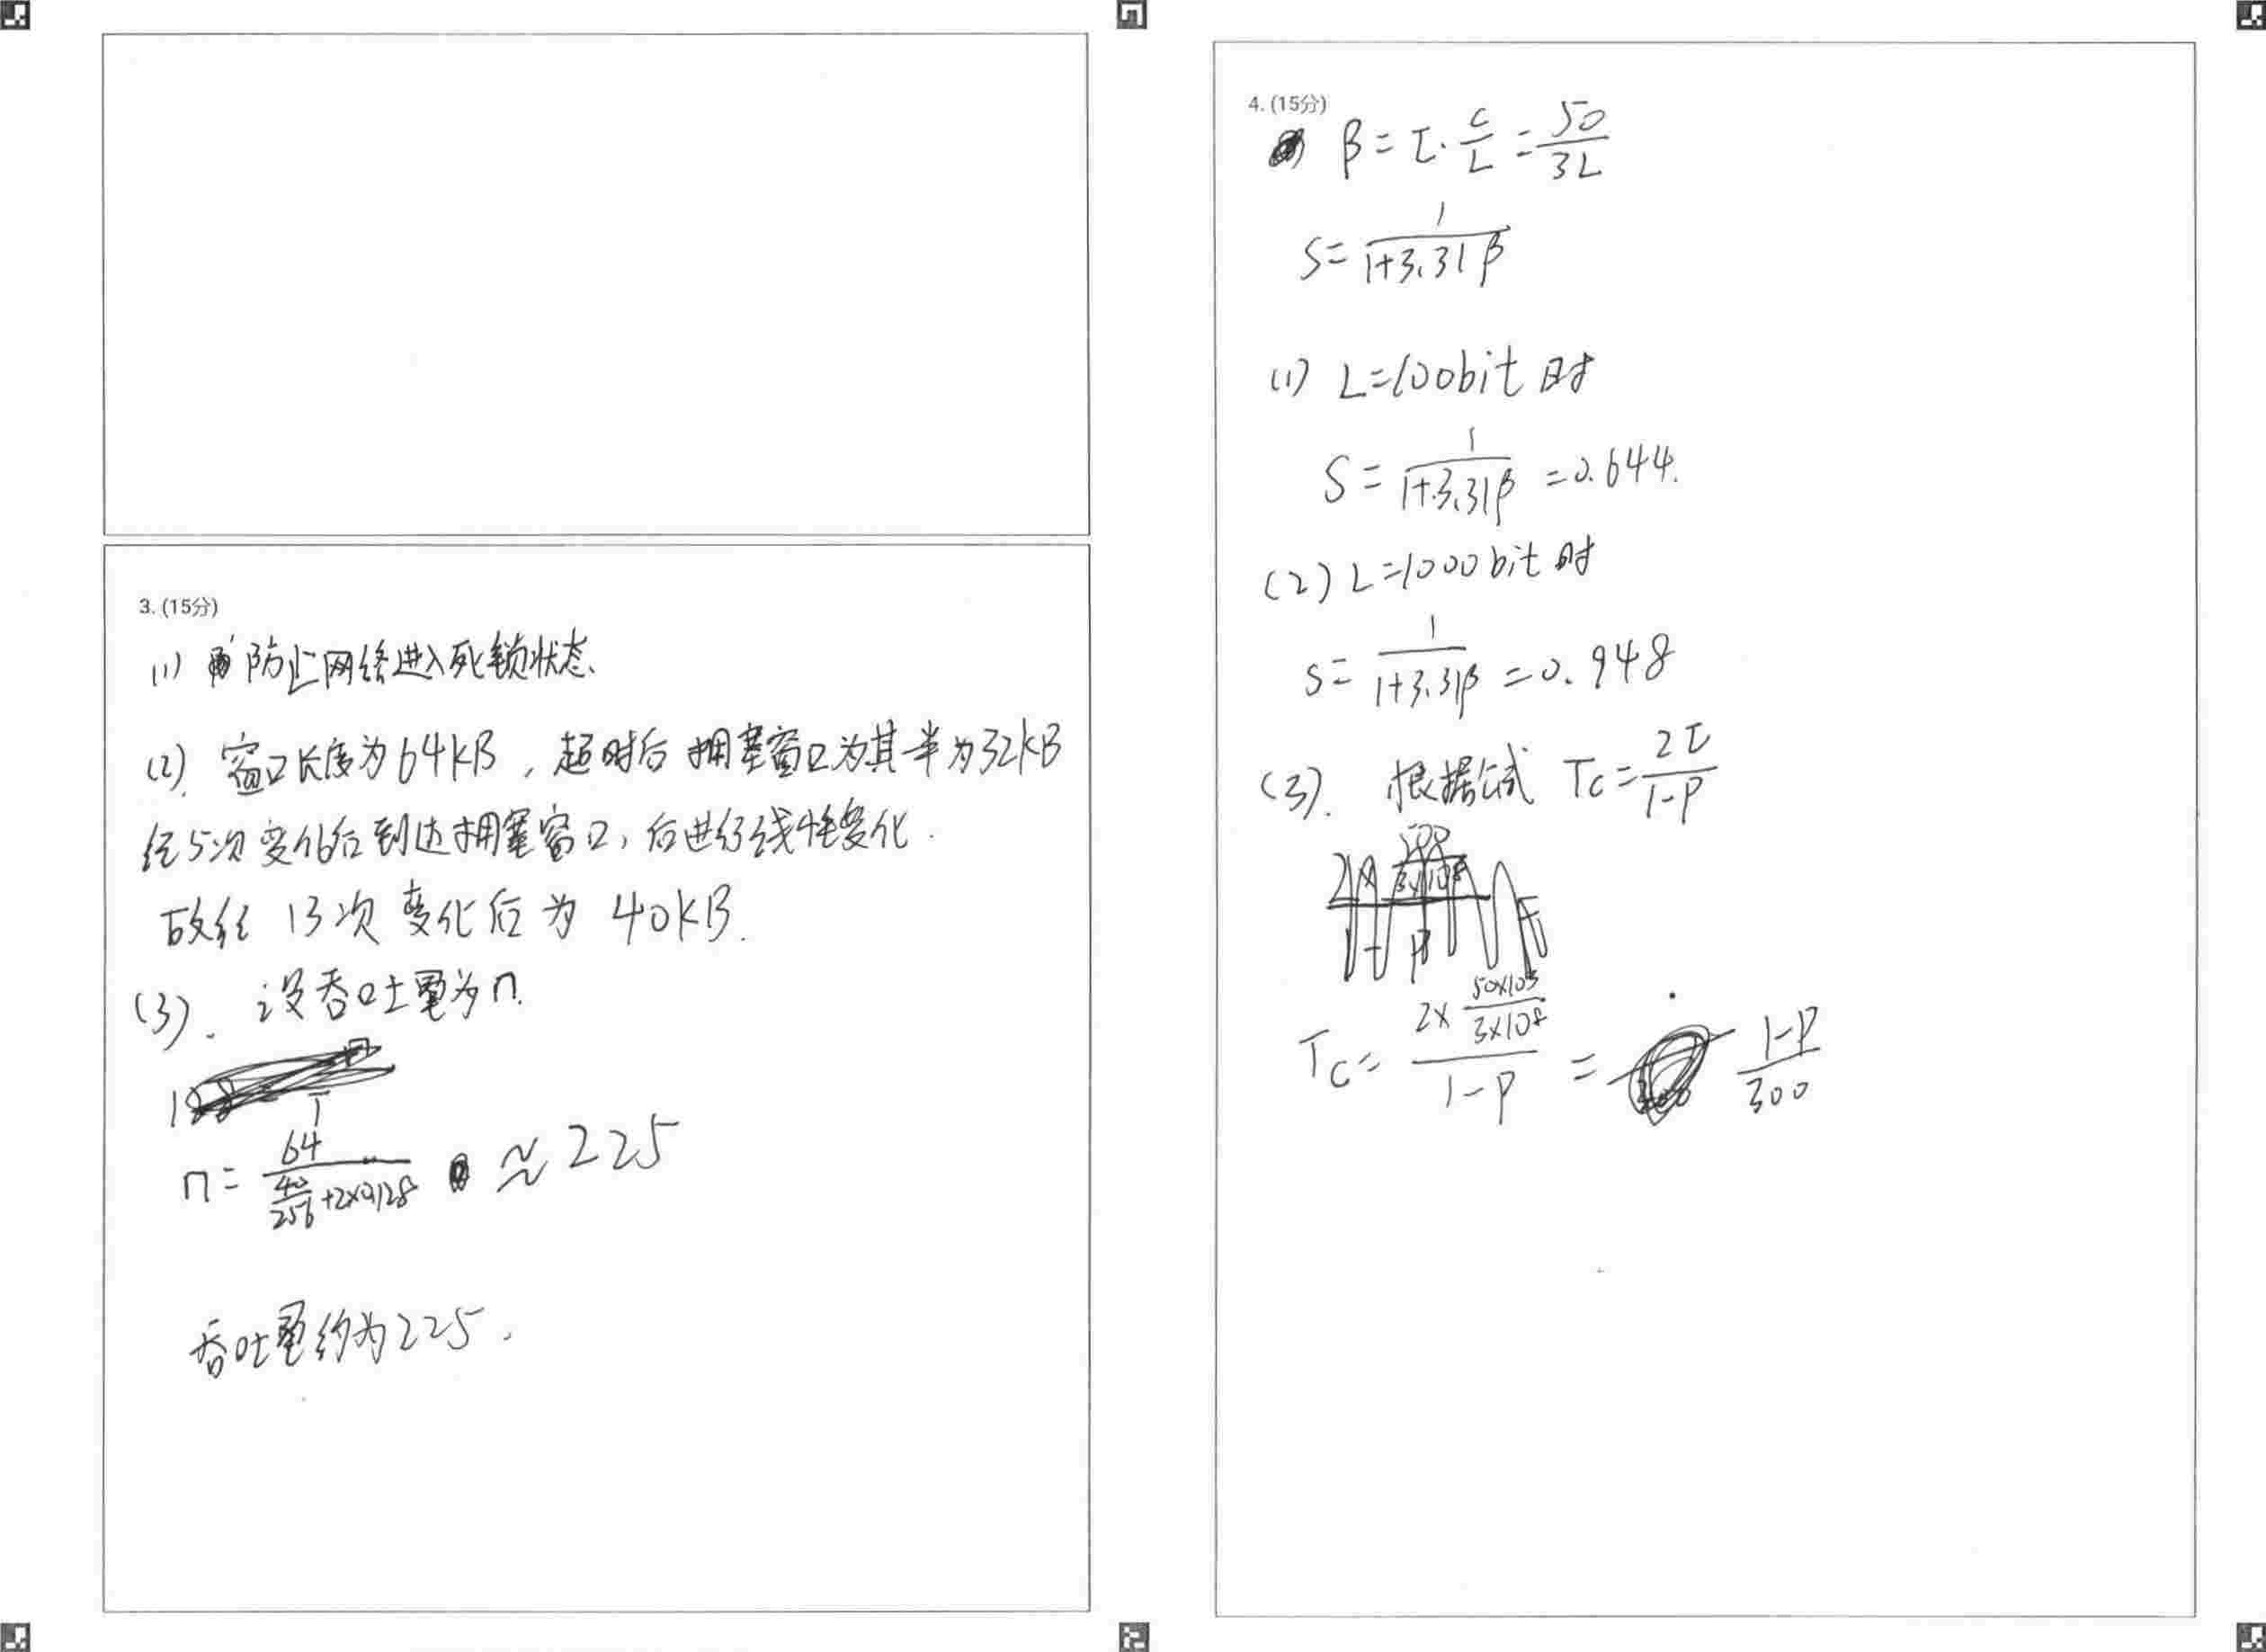 3. (15分)
(1) 防止网络进入死锁状态.
(2). 窗口长度为64kB, 超时后拥塞窗口为其一半为32kB
经5次变化后到达拥塞窗口, 后进行线性变化.
故经13次变化后为40kB.
(3). 设吞吐量为n.
n = 64 / (40/256 + 2×0.128) ≈ 225
吞吐量约为225.
4. (15分)
β = τ · C/L = 50/3L
S = 1/(1+3.31β)
(1) L=100bit时
S = 1/(1+3.31β) = 0.644.
(2) L=1000bit时
S = 1/(1+3.31β) = 0.948
(3). 根据公式 Tc = 2τ/(1-P)
Tc = (2× (50×10³)/(3×10⁸))/(1-P) = (1-P)/300